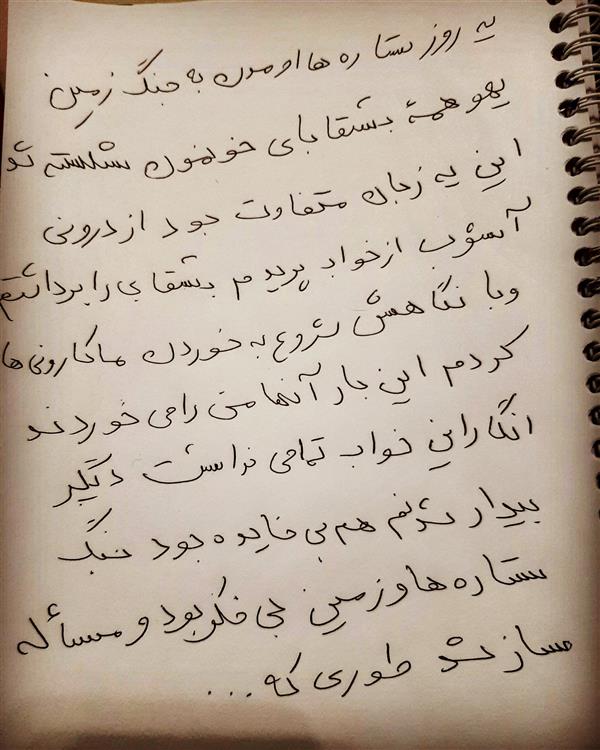 یه روز ستاره ها اومدن به جنگ زمین
یهو همهٔ بشقابای خونمون شکسته شد
این یه زمان متفاوت بود از درونی
آشوب از خواب پریدم بشقابی را برداشتم
و با نگاهش شروع به خوردن ماکارونی ها
کردم این بار آنها من را می خوردند
انگار این خواب تمامی نداشت دیگر
بیدار شدنم هم بی فایده بود جنگ
ستاره ها و زمین بی فکر بود و مسأله
ساز شد طوری که ...